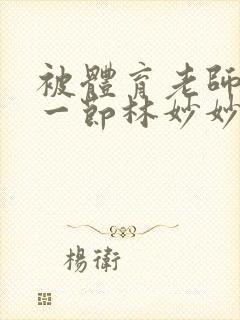 被體育老師
一節林妙妙
楊衛